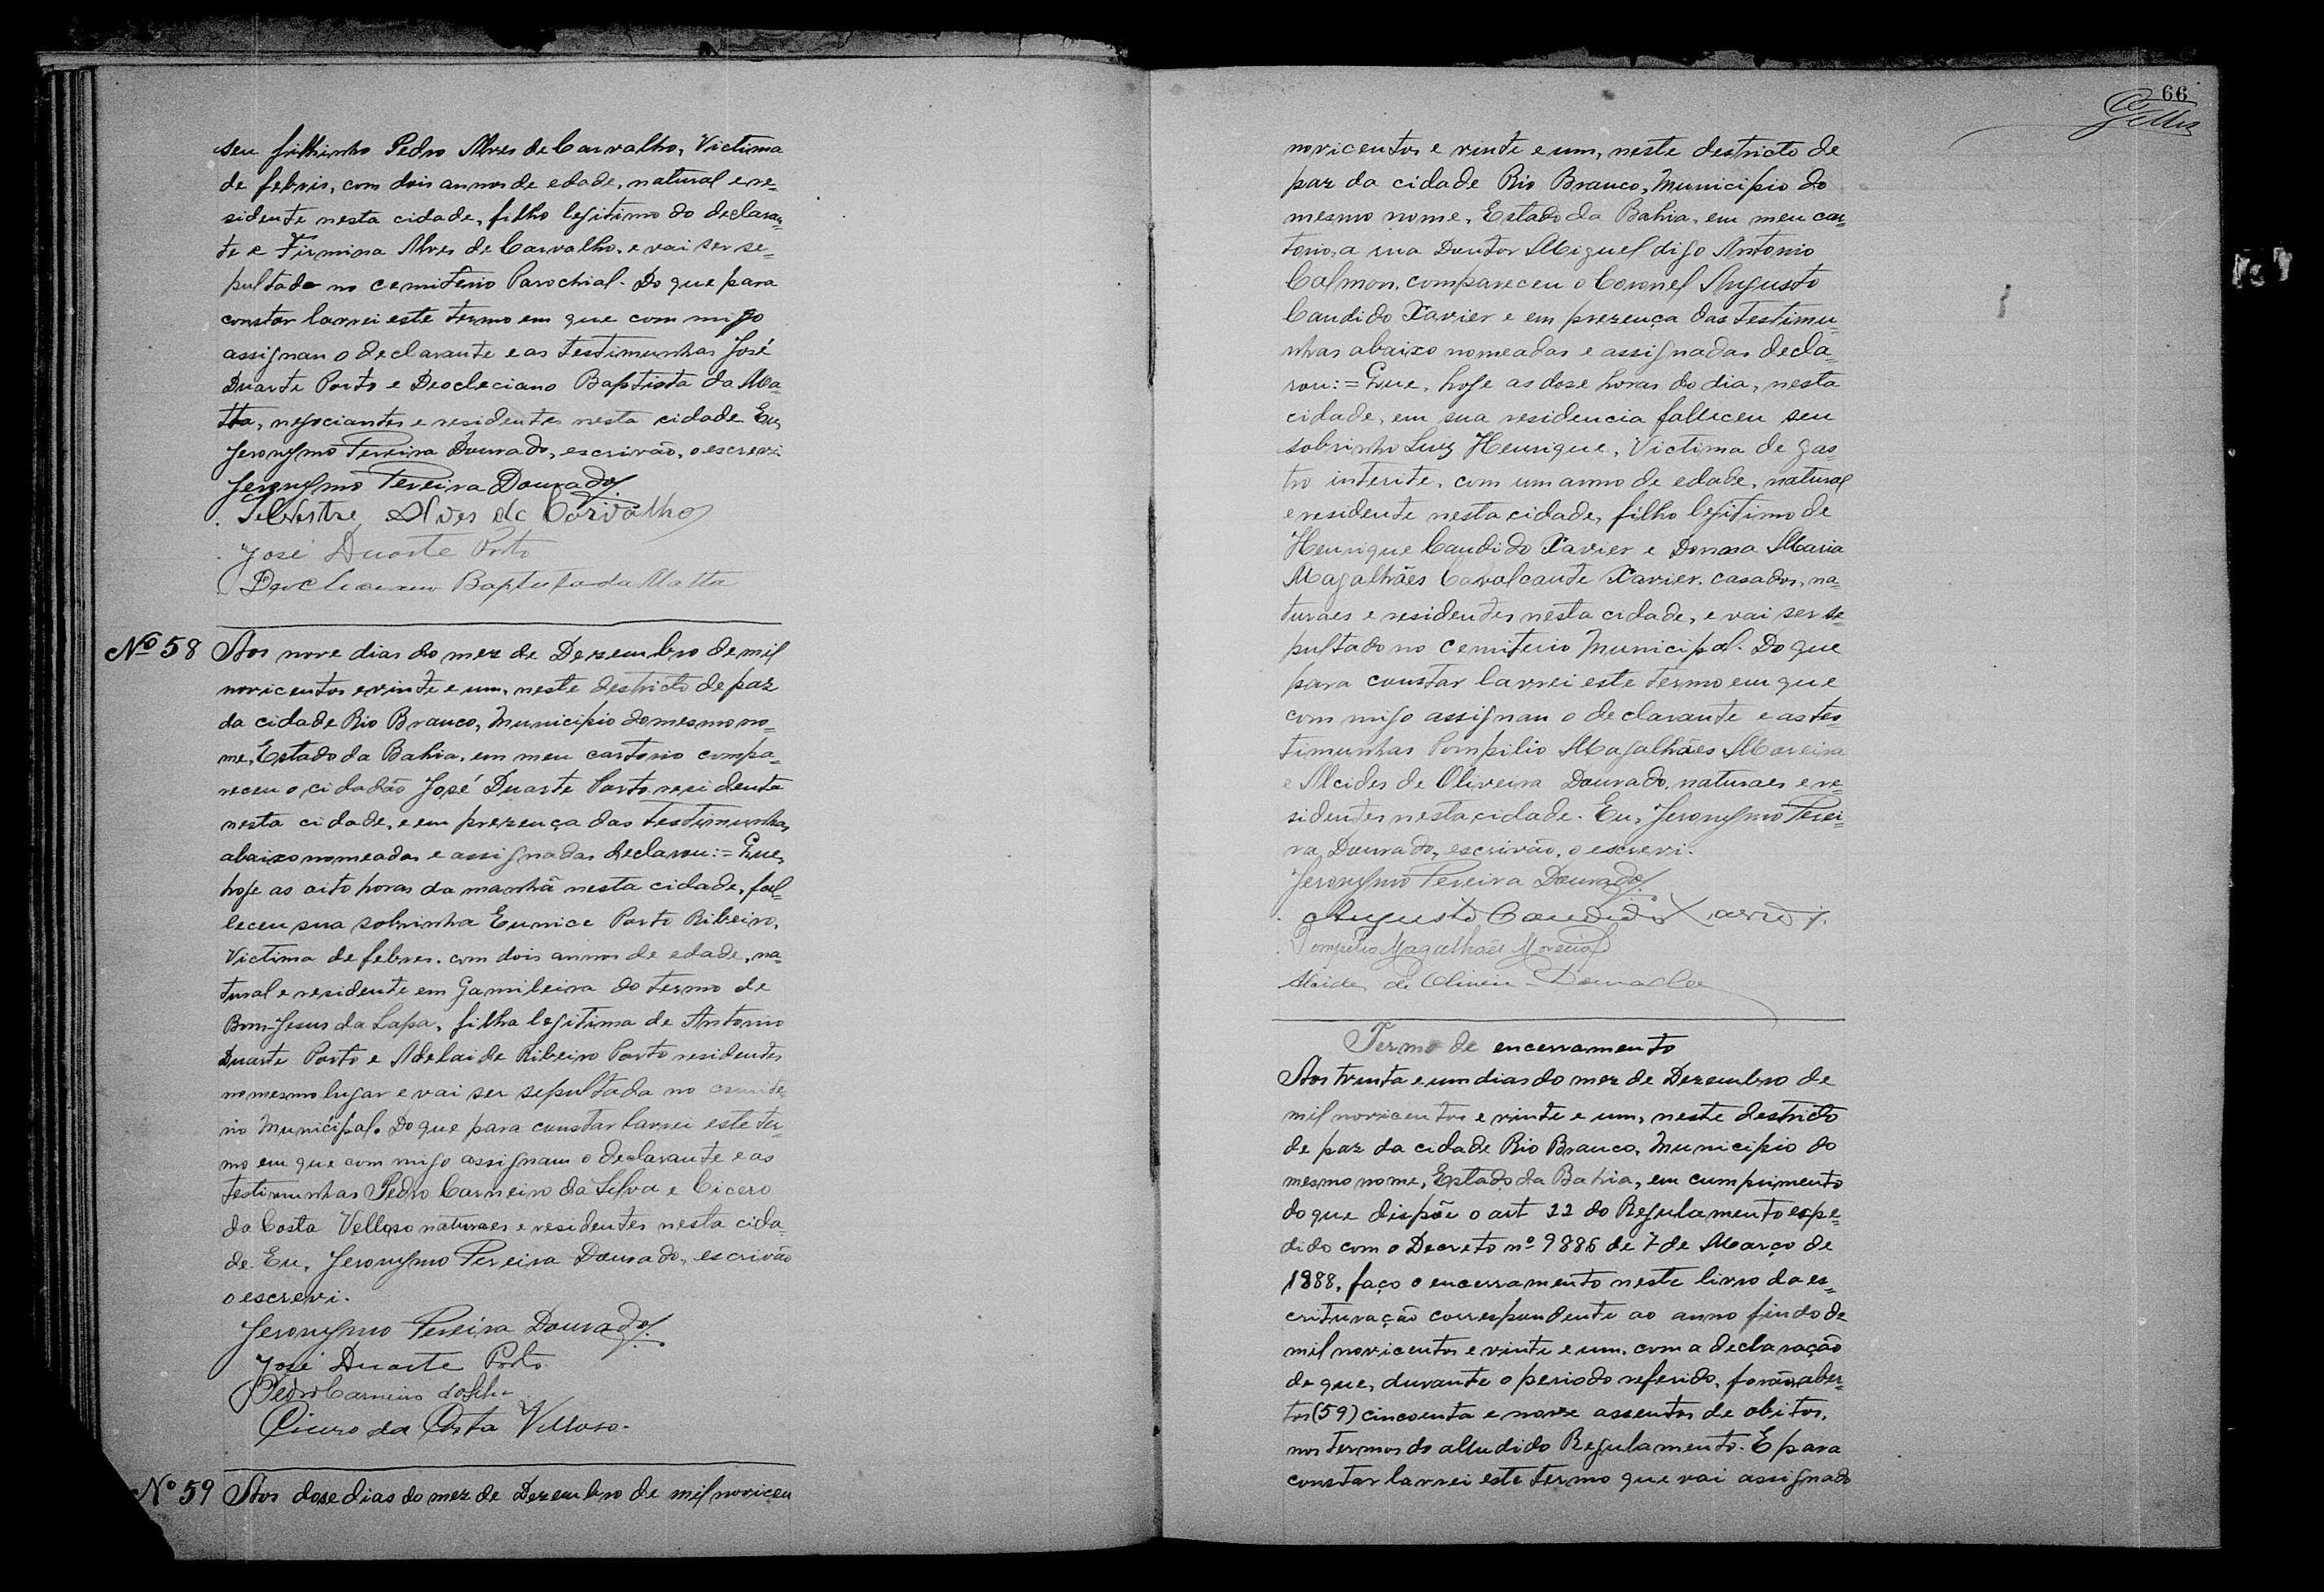 seu filhinho Pedro Alves de Carvalho, Victima
de febris, com dois annos de edade, natural e re-
sidente nesta cidade, filho legitimo do declaran-
te e Firmina Alves de Carvalho, e vai ser se-
pultado no cemiterio Parochial. Do que para
constar lavrei este termo em que com migo
assignan o declarante e as testimunhas José
Duarte Porto e Deocleciano Baptista da Ma-
tta, negociantes e residentes nesta cidade Eu,
Jeronymo Pereira Dourado, escrivão, o escrevi
Jeronymo Pereira Dourado.
Selvestre Alves de Carvalho
José Duarte Porto
Deocleciano Baptista da Matta
Nº 58 Aos nove dias do mez de Dezembro de mil
novicentos e vinte e um, neste destricto de paz
da cidade Rio Branco, Municipio do mesmo no-
me, Estado da Bahia, em meu cartorio compa-
receu o cidadão José Duarte Porto residente
nesta cidade, e em prezença das testimunhas
abaixo nomeadas e assignadas declarou:= Que,
hoje as oito horas da manhã nesta cidade, fal-
leceu sua sobrinha Eunice Porto Ribeiro,
Victima de febres. com dois annos de edade, na-
tural e residente em Gamileira do termo de
Bom-Jesus da Lapa, filha legitima de Antonio
Duarte Porto e Adelaide Ribeiro Porto residentes
no mesmo lugar e vai ser sepultada no cemite-
rio Municipal. Do que para constar lavrei este ter-
mo em que com migo assignam o declarante e as
testimunhas Pedro Carneiro da Silva e Cicero
da Costa Velloso naturaes e residentes nesta cida-
de. Eu, Jeronymo Pereira Dourado, escrivão
o escrevi.
Jeronymo Pereira Dourado.
José Duarte Porto
Pedro Carneiro da Silva
Cicero da Costa Velloso.
Nº 59 Aos dose dias do mez de Dezembro de mil novicen
66
novicentos e vinte e um, neste destricto de
paz da cidade Rio Branco, Municipio do
mesmo nome, Estado da Bahia, em meu car-
torio, a rua Doutor Miguel digo Antonio
Calmon, compareceu o Coronel Augusto
Candido Xavier e em prezença das testimu-
nhas abaixo nomeadas e assignadas decla-
rou:= Que, hoje as dose horas do dia, nesta
cidade, em sua residencia falleceu seu
sobrinho Luiz Henrique, Victima de gas-
tro interite, com um anno de edade, natural
e residente nesta cidade, filho legitimo de
Henrique Candido Xavier e Donana Maria
Magalhães Cavalcante Xavier, casados, na-
turaes e residentes nesta cidade, e vai ser se-
pultado no cemiterio Municipal. Do que
para constar lavrei este termo em que
com migo assignan o declarante e as tes-
timunhas Pompilio Magalhães Moreira
e Alcides de Oliveira Dourado, naturaes e re-
sidentes nesta cidade. Eu, Jeronymo Perei-
ra Dourado, escrivão, o escrevi.
Jeronymo Pereira Dourado.
Augusto Candido Xavier
Pompilio Magalhães Moreira
Alcides de Oliveira Dourado
Termo de encerramento
Aos trinta e um dias do mez de Dezembro de
mil novicentos e vinte e um, neste destricto
de paz da cidade Rio Branco, Municipio do
mesmo nome, Estado da Bahia, em cumprimento
do que dispõe o art 22 do Regulamento expe-
dido com o Decreto nº 9886 de 7 de Março de
1888, faço o encerramento neste livro da es-
crituração correspondente ao anno findo de
mil novicentos e vinte e um, com a declaração
de que, durante o periodo referido, forão aber-
tos (59) cincoenta e nove assentos de obitos,
nos termos do alludido Regulamento. E para
constar lavrei este termo que vai assignado